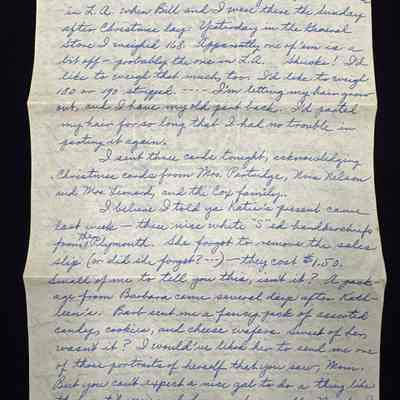 in L.A. when Bill and I were there the Sunday
after Christmas day. Yesterday in the General
Store I weighed 168. Apparently one of 'em is a
bit off - probably the one in L.A. Shucks! I'd
like to weigh that much, too. I'd like to weigh
180 or 190 stripped. ---- I'm letting my hair grow
out, and I have my old part back. I'd parted
my hair for so long that I had no trouble in
parting it again.
I sent three cards tonight, acknowledging
Christmas cards from Mrs. Partridge, Nina Nelson
and Mrs. Lenard, and the Cox family.
I believe I told ya Katie's present came
last week - three nice white "S"ed handkerchiefs
from the Plymouth. She forgot to remove the sales
slip (or did she forget? --) - they cost $1.50.
Small of me to tell you this, isn't it? A pack-
age from Barbara came several days after Kath-
leen's. Barb sent me a fancy pack of assorted
candy, cookies, and cheese wafers. Sweet of her,
wasn't it? I would've liked her to send me one
of those portraits of herself that you saw, Mom.
But you can't expect a nice gal to do a thing like